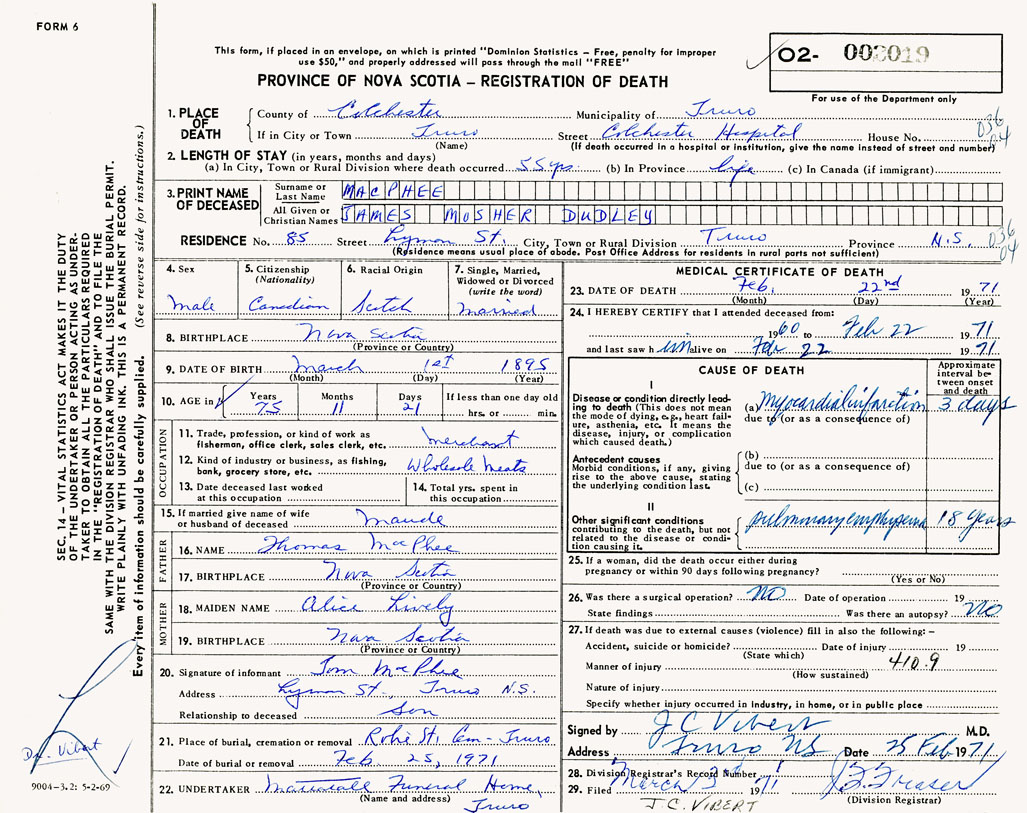 FORM 6
This form, if placed in an envelope, on which is printed "Dominion Statistics – Free, penalty for improper
use $50," and properly addressed will pass through the mail "FREE"
PROVINCE OF NOVA SCOTIA – REGISTRATION OF DEATH
02- 002019
For use of the Department only
1. PLACE OF DEATH
County of Colchester Municipality of Truro
If in City or Town Truro Street Colchester Hospital House No.
036
04
(Name) (If death occurred in a hospital or institution, give the name instead of street and number)
2. LENGTH OF STAY (in years, months and days)
(a) In City, Town or Rural Division where death occurred 55 yrs. (b) In Province life (c) In Canada (if immigrant)
3. PRINT NAME OF DECEASED
Surname or Last Name MACPHEE
All Given or Christian Names JAMES MOSHER DUDLEY
RESIDENCE No. 85 Street Lyman St. City, Town or Rural Division Truro Province N.S.
036
04
(Residence means usual place of abode. Post Office Address for residents in rural parts not sufficient)
4. Sex
Male
5. Citizenship (Nationality)
Canadian
6. Racial Origin
Scotch
7. Single, Married, Widowed or Divorced (write the word)
Married
8. BIRTHPLACE Nova Scotia
(Province or Country)
9. DATE OF BIRTH March 1st 1895
(Month) (Day) (Year)
10. AGE in Years Months Days If less than one day old
75 11 21 hrs. or min.
OCCUPATION
11. Trade, profession, or kind of work as
fisherman, office clerk, sales clerk, etc. merchant
12. Kind of industry or business, as fishing,
bank, grocery store, etc. Wholesale Meats
13. Date deceased last worked
at this occupation
14. Total yrs. spent in
this occupation
15. If married give name of wife
or husband of deceased Maude
FATHER
16. NAME Thomas MacPhee
17. BIRTHPLACE Nova Scotia
(Province or Country)
MOTHER
18. MAIDEN NAME Alice Lively
19. BIRTHPLACE Nova Scotia
(Province or Country)
20. Signature of informant Tom MacPhee
Address Lyman St., Truro N.S.
Relationship to deceased Son
21. Place of burial, cremation or removal Robie St. Cem - Truro
Date of burial or removal Feb. 25, 1971
22. UNDERTAKER Funeral Home,
(Name and address) Truro
MEDICAL CERTIFICATE OF DEATH
23. DATE OF DEATH Feb. 22nd 1971
(Month) (Day) (Year)
24. I HEREBY CERTIFY that I attended deceased from:
1960 to Feb 22 1971
and last saw him alive on Feb 22 1971
CAUSE OF DEATH
Approximate interval between onset and death
I
Disease or condition directly leading to death (This does not mean the mode of dying, e.g., heart failure, asthenia, etc. It means the disease, injury, or complication which caused death.)
(a) Myocardial infarction 3 days
due to (or as a consequence of)
Antecedent causes
Morbid conditions, if any, giving rise to the above cause, stating the underlying condition last.
(b)
due to (or as a consequence of)
(c)
II
Other significant conditions contributing to the death, but not related to the disease or condition causing it.
pulmonary emphysema 18 years
25. If a woman, did the death occur either during
pregnancy or within 90 days following pregnancy?
(Yes or No)
26. Was there a surgical operation? NO Date of operation 19
State findings Was there an autopsy? NO
27. If death was due to external causes (violence) fill in also the following: –
Accident, suicide or homicide? Date of injury 19
(State which)
Manner of injury 410.9
(How sustained)
Nature of injury
Specify whether injury occurred in industry, in home, or in public place
Signed by J C Vibert M.D.
Address Truro NS Date 25 Feb 1971
28. Division Registrar's Record Number
29. Filed March 1971
(Division Registrar)
J.C. VIBERT
SEC. 14 – VITAL STATISTICS ACT MAKES IT THE DUTY
OF THE UNDERTAKER OR PERSON ACTING AS UNDER-
TAKER TO OBTAIN ALL THE PARTICULARS REQUIRED
IN THE "REGISTRATION OF DEATH" AND TO FILE THE
SAME WITH THE DIVISION REGISTRAR WHO SHALL ISSUE THE BURIAL PERMIT.
WRITE PLAINLY WITH UNFADING INK. THIS IS A PERMANENT RECORD.
Every item of information should be carefully supplied. (See reverse side for instructions.)
Dr. Vibert
9004-3.2: 5-2-69